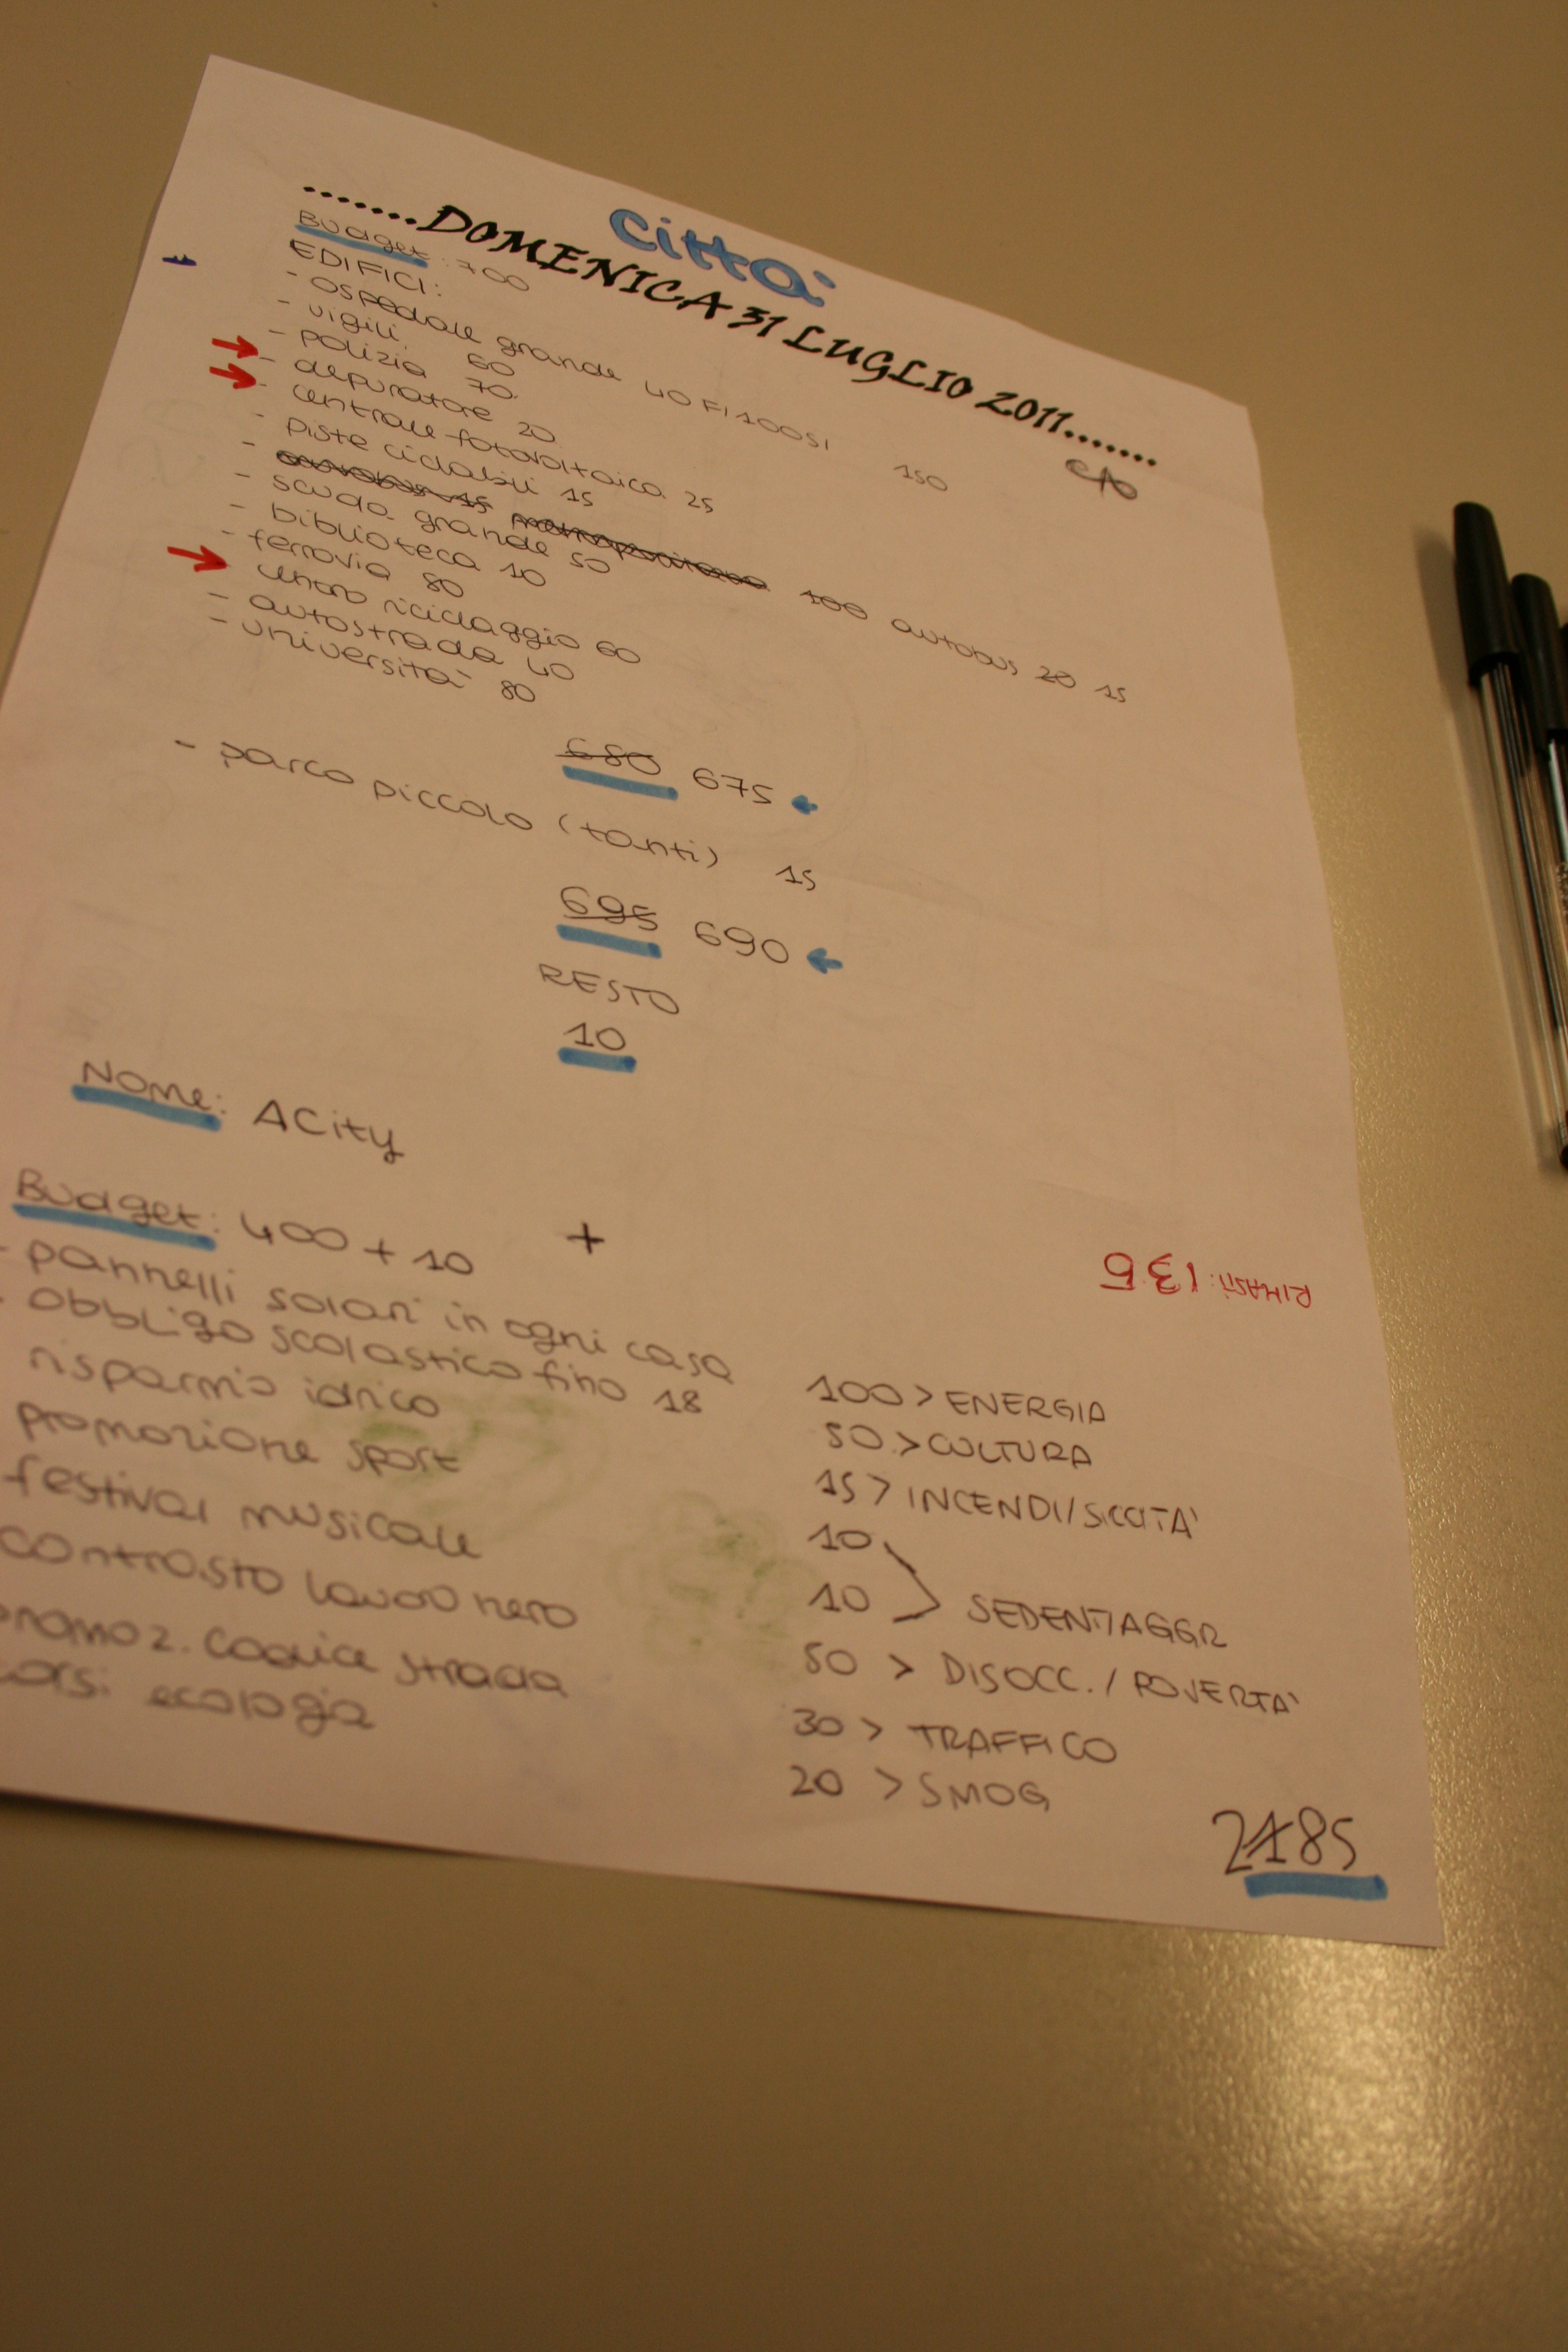 Città
.......DOMENICA 31 LUGLIO 2011.......
Budget: 700
EDIFICI:
- ospedale grande 40 FI 100SI 150
- vigili 60
- polizia 70
- depuratore 20
- centrale fotovoltaica 25
- piste ciclabili 15
- autobus 15 metropolitana 100 autobus 20 15
- scuola grande 50
- biblioteca 10
- ferrovia 80
centro riciclaggio 60
- autostrada 40
- università 80
680 675
- parco piccolo (tanti) 15
695 690
RESTO
10
Nome: ACity
Budget: 400 + 10 +
RIMASTI: 135
- pannelli solari in ogni casa 100 > ENERGIA
- obbligo scolastico fino 18 50 > CULTURA
risparmio idrico 15 > INCENDI/SICCITA'
promozione sport 10
festival musicale 10 > SEDENT/AGGR
contrasto lavoro nero 50 > DISOCC. / POVERTA'
promoz. Codice strada 30 > TRAFFICO
corsi ecologia 20 > SMOG
2185